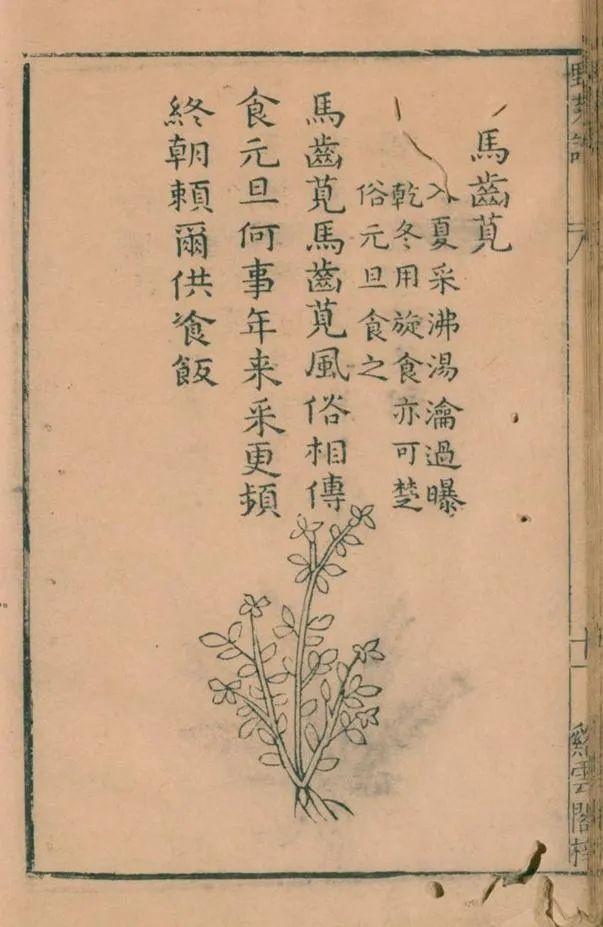 馬齒莧
入夏采沸湯瀹過曝
乾冬用旋食亦可楚
俗元旦食之
馬齒莧馬齒莧風俗相傳
食元旦何事年来采更頻
終朝賴爾供飡飯
十一
雲閣梓